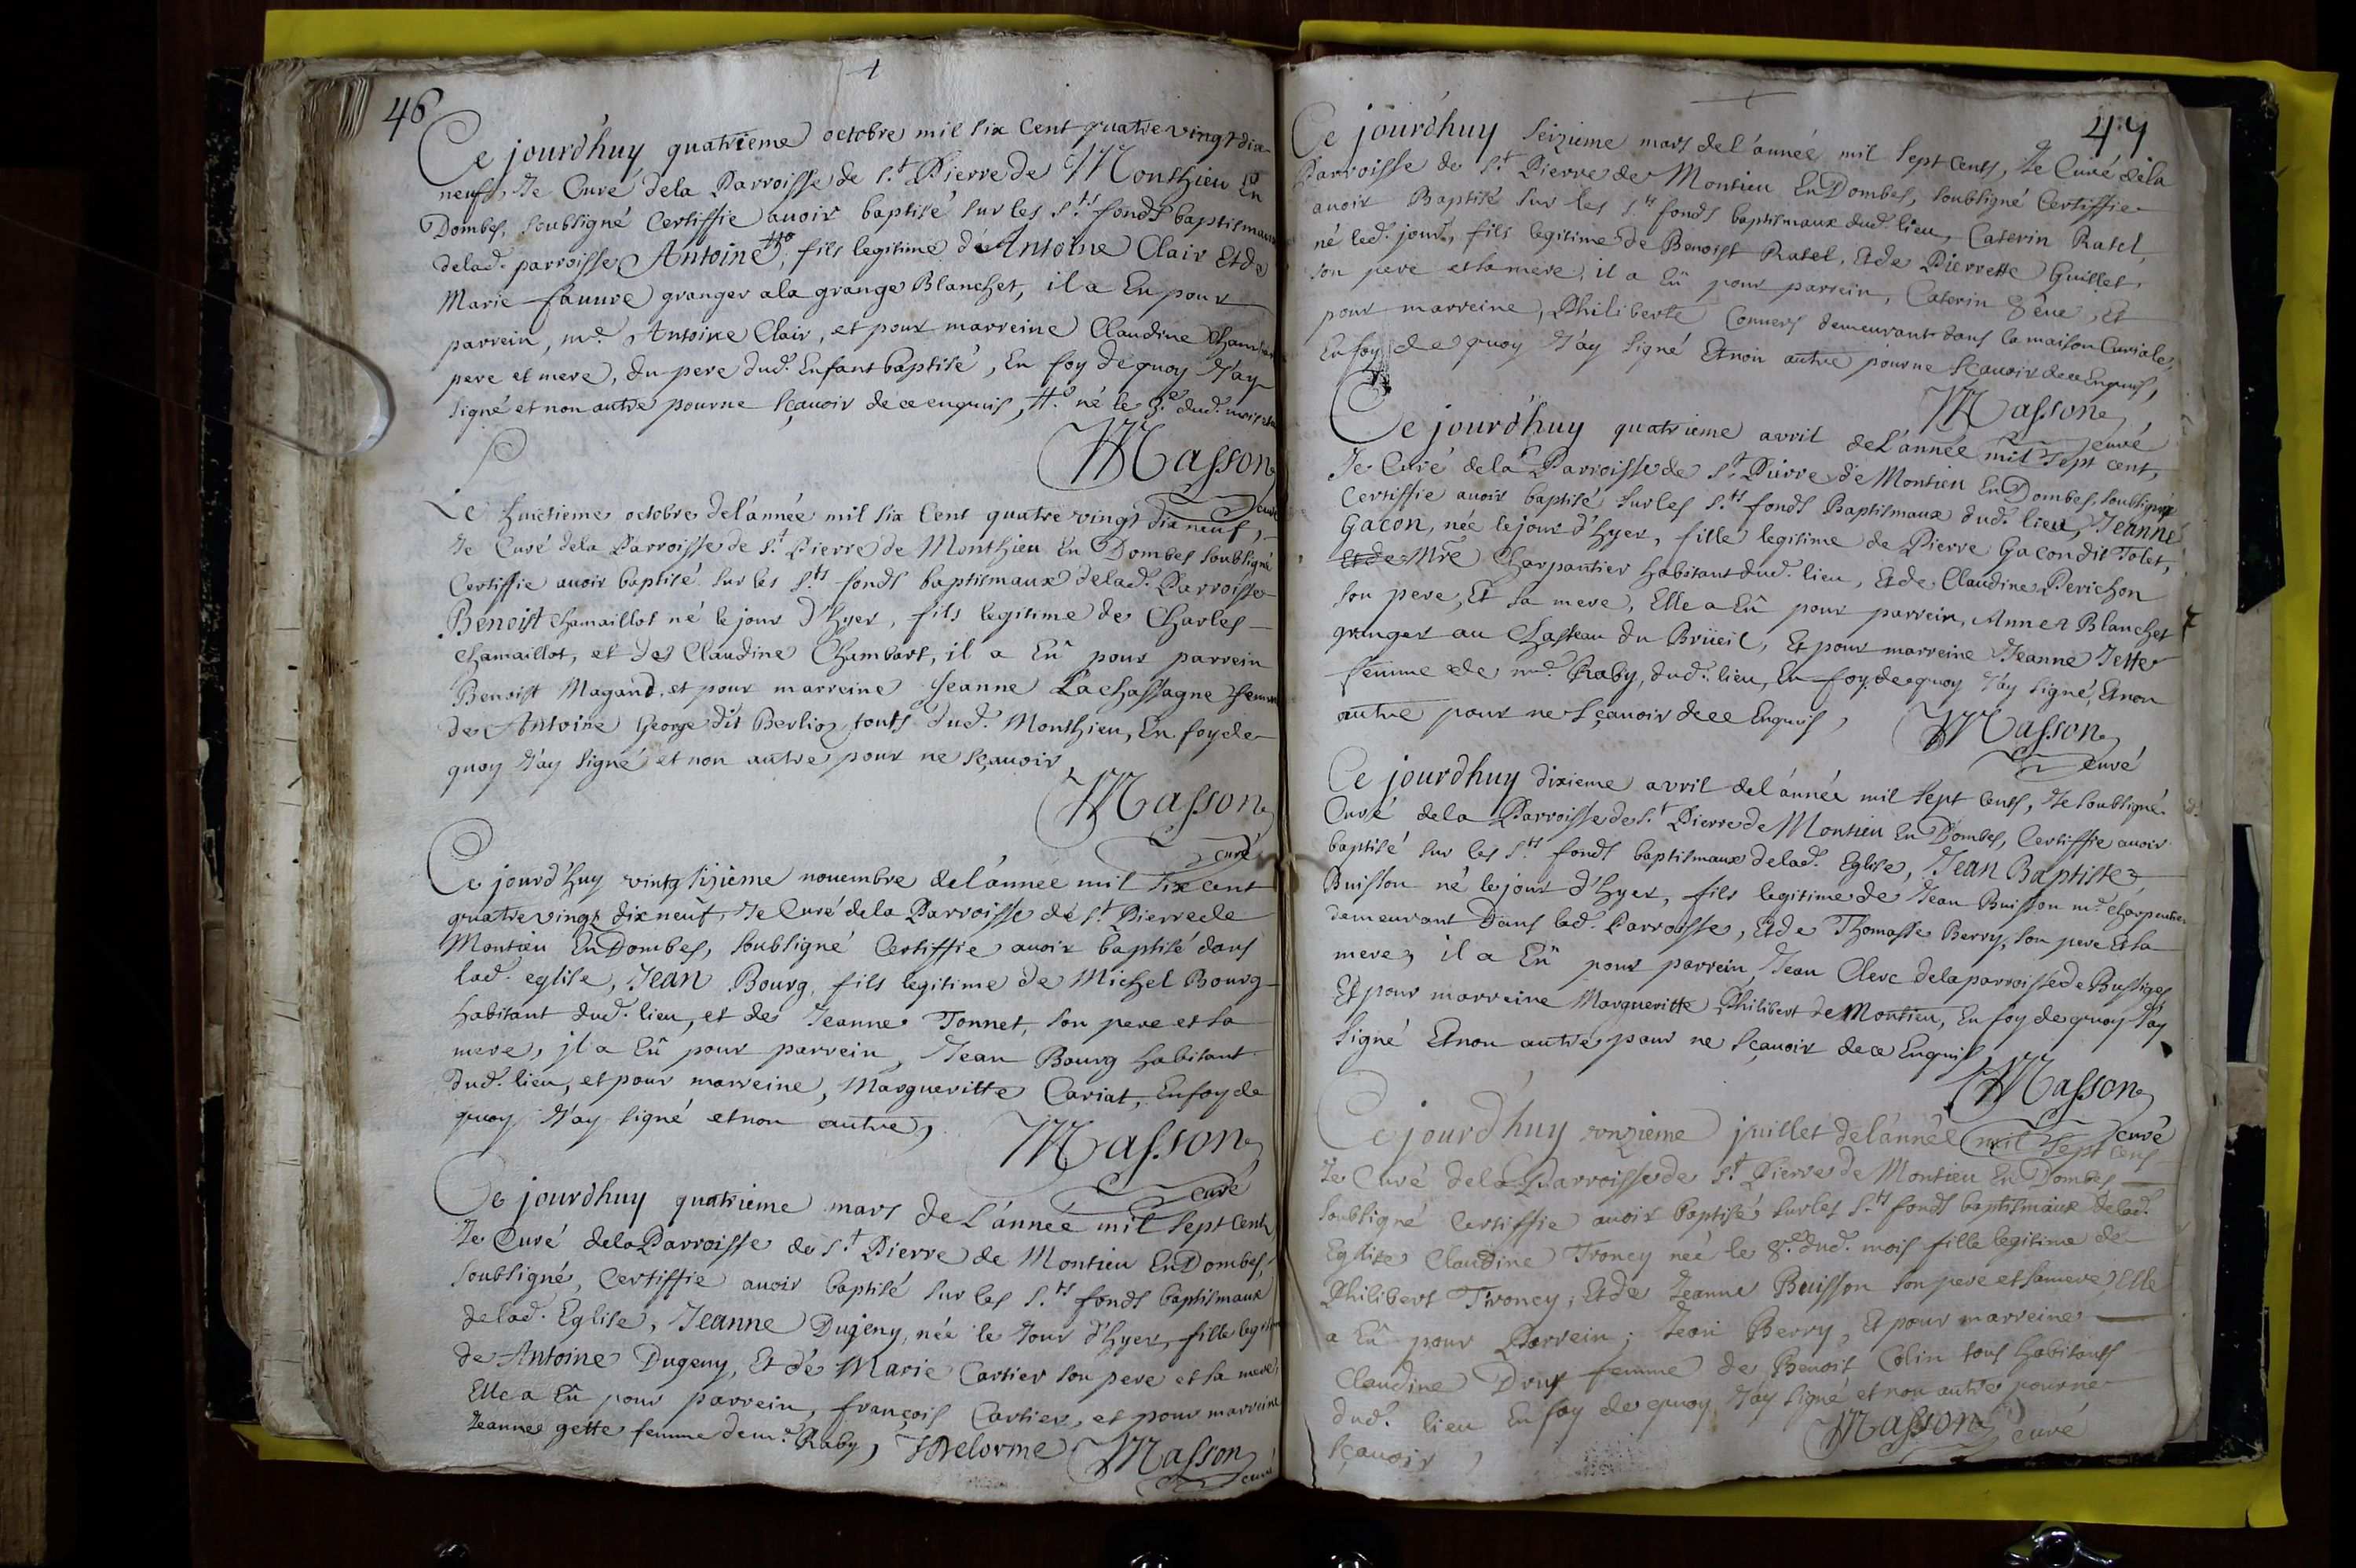 46
Ce jourd'huy quatrieme octobre mil six cent quatre vingt dix
neuf, Je Curé dela Parroisse de St. Pierre de Monthieu En
Dombes, soubsigné Certiffie auoir baptisé sur les Sts. fonds baptismaux
delad. parroisse Antoine #, fils legitime de Antoine Clair Et de
Marie fauure granger ala grange Blanchet, il a Eu pour
parrein, md. Antoine Clair, et pour marreine Claudine
pere et mere, du pere dud. Enfant baptisé, En foy de quoy J'ay
signé et non autre pour ne sçauoir de ce enquis, #. né le 3e. dud. mois
Masson
curé
Le huictieme octobre del'année mil six Cent quatre vingt dix neuf,
Je Curé dela Parroisse de St. Pierre de Monthieu En Dombes soubsigné
Certiffie auoir baptisé sur les Sts. fonds baptismaux delad. Parroisse
Benoist Chamaillot né le jour d'hyer, fils legitime de Charles
Chamaillot, et de Claudine Chambart, il a Eû pour parrein
Benoist Magand, et pour marreine Jeanne Lachassagne femme
de Antoine George dit Berlioz touts dud. Monthieu, En foy de
quoy J'ay signé et non autre pour ne sçauoir
Masson
curé
Ce jourd'huy vintg sizieme nouembre del'année mil six cent
quatre vingt dix neuf, Je Curé dela Parroisse de St. Pierre de
Montieu En Dombes, soubsigné Certiffie auoir baptisé dans
lad. eglise, Jean Bourg, fils legitime de Michel Bourg
habitant dud. lieu, et de Jeanne Tonnet, son pere et sa
mere, il a Eû pour parrein, Jean Bourg habitant
dud. lieu, et pour marreine, Margueritte Cariat, En foy de
quoy J'ay signé et non autre,
Masson
curé
Ce jourdhuy quatrieme mars de L'année mil sept Cents
Je Curé dela Parroisse de St. Pierre de Montieu En Dombes,
soubsigné, Certiffie auoir baptisé sur les Sts. fonds baptismaux
delad. Eglise, Jeanne Dugeny, née le Jour d'hyer, fille legitime
de Antoine Dugeny, Et de Marie Cartier son pere et sa mere,
Elle a Eû pour parrein, françois Cartier, et pour marreine
Jeanne gette femme de md. Raby, Delorme Masson
curé
47
Ce jourd'huy seizieme mars del'année mil sept Cents, Je Curé dela
Parroisse de St. Pierre de Montieu En Dombes, soubsigné Certiffie
auoir Baptisé sur les Sts. fonds baptismaux dud. lieu, Caterin Ratel,
né led. jour, fils legitime de Benoist Ratel, Et de Pierrette Guillet,
son pere et sa mere, il a Eû pour parrein, Caterin, Et
pour marreine, Philiberte Conuers demeurant dans la maison Curiale,
En foy de quoy J'ay signé Et non autre pour ne sçauoir de ce Enquis,
Masson
curé
Ce jourd'huy quatrieme avril de L'année mil sept cent,
Je Curé dela Parroisse de St. Pierre de Montieu En Dombes, soubsigné
Certiffie auoir baptisé sur les Sts. fonds Baptismaux dud. lieu, Jeanne
Gacon, née le jour d'hyer, fille legitime de Pierre Gacon dit Tolet,
Et de Mre Charpantier habitant dud. lieu, Et de Claudine Perichon
son pere, Et sa mere, Elle a Eû pour parrein, Annet Blanchet
granger au Chasteau du Brüeil, Et pour marreine Jeanne Jette
femme de md. Raby, dud. lieu, En foy de quoy J'ay signé, Et non
autre pour ne sçauoir de ce Enquis,
Masson
curé
Ce jourdhuy dixieme avril del'année mil sept Cents, Je soubsigné
Curé dela Parroisse de St. Pierre de Montieu En Dombes, Certiffie auoir
baptisé sur les Sts. fonds baptismaux delad. Eglise, Jean Baptiste
Buisson né le jour d'hyer, fils legitime de Jean Buisson md. charpentier
demeurant dans lad. Parroisse, Et de Thomasse Berry, son pere Et sa
mere, il a Eû pour parrein, Jean Clerc dela parroisse de Bussiges
Et pour marreine Margueritte Philibert de Montieu, En foy de quoy J'ay
signé Et non autre pour ne sçauoir de ce Enquis,
Masson
curé
Ce jourd'huy onzieme juillet del'année mil sept cens
Je Curé dela Parroisse de St. Pierre de Montieu En Dombes
soubsigné Certiffie auoir Baptisé sur les Sts. fonds baptismaux delad.
Eglise Claudine Troncy née le 8e. dud. mois fille legitime de
Philibert Troncy, Et de Jeanne Buisson son pere et sa mere, Elle
a Eû pour Parrein, Jean Berry, Et pour marreine
Claudine Druy femme de Benoit Colin tous habitants
dud. lieu En foy de quoy J'ay signé et non autre pour ne
sçauoir,
Masson
curé